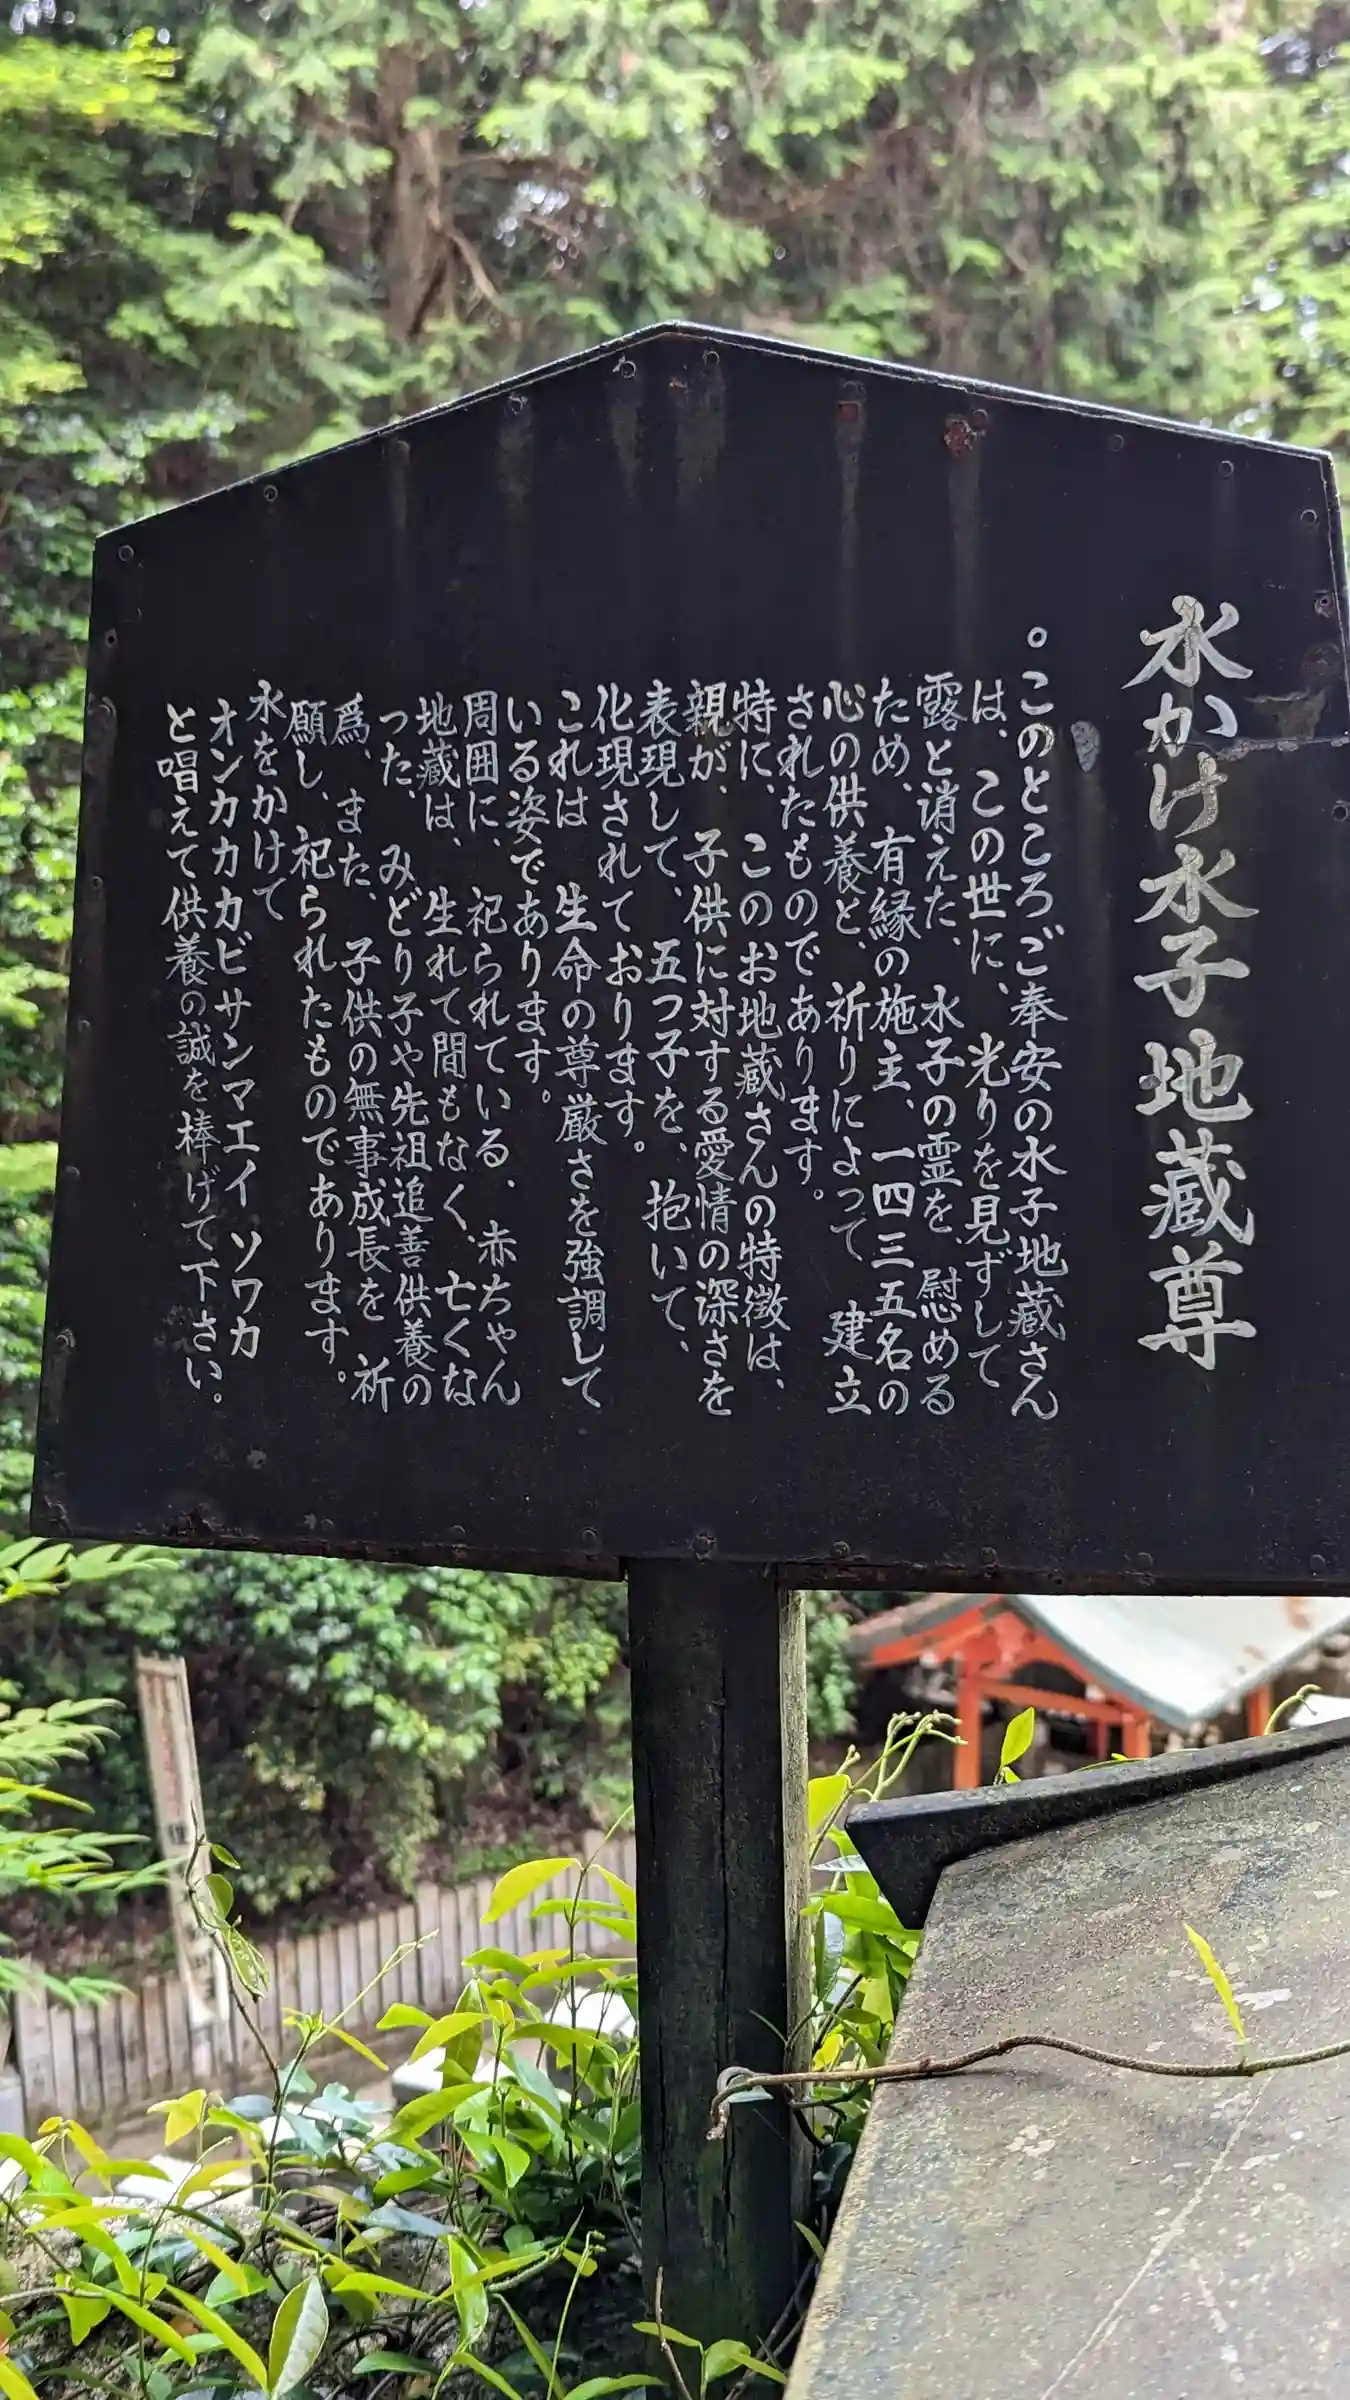 水かけ水子地蔵尊
。このところご奉安の水子地蔵さん
は、この世に、光りを見ずして
露と消えた、水子の霊を、慰める
ため、有縁の施主、一四三五名の
心の供養と、祈りによって 建立
されたものであります。
特に、このお地蔵さんの特徴は、
親が、子供に対する愛情の深さを
表現して、五つ子を、抱いて、
化現されております。
これは 生命の尊厳さを強調して
いる姿であります。
周囲に、祀られている、赤ちゃん
地蔵は、生れて間もなく、亡くな
った、みどり子や先祖追善供養の
爲、また、子供の無事成長を 祈
願し、祀られたものであります。
水をかけて
オンカカカビサンマエイソワカ
と唱えて供養の誠を棒げて下さい。